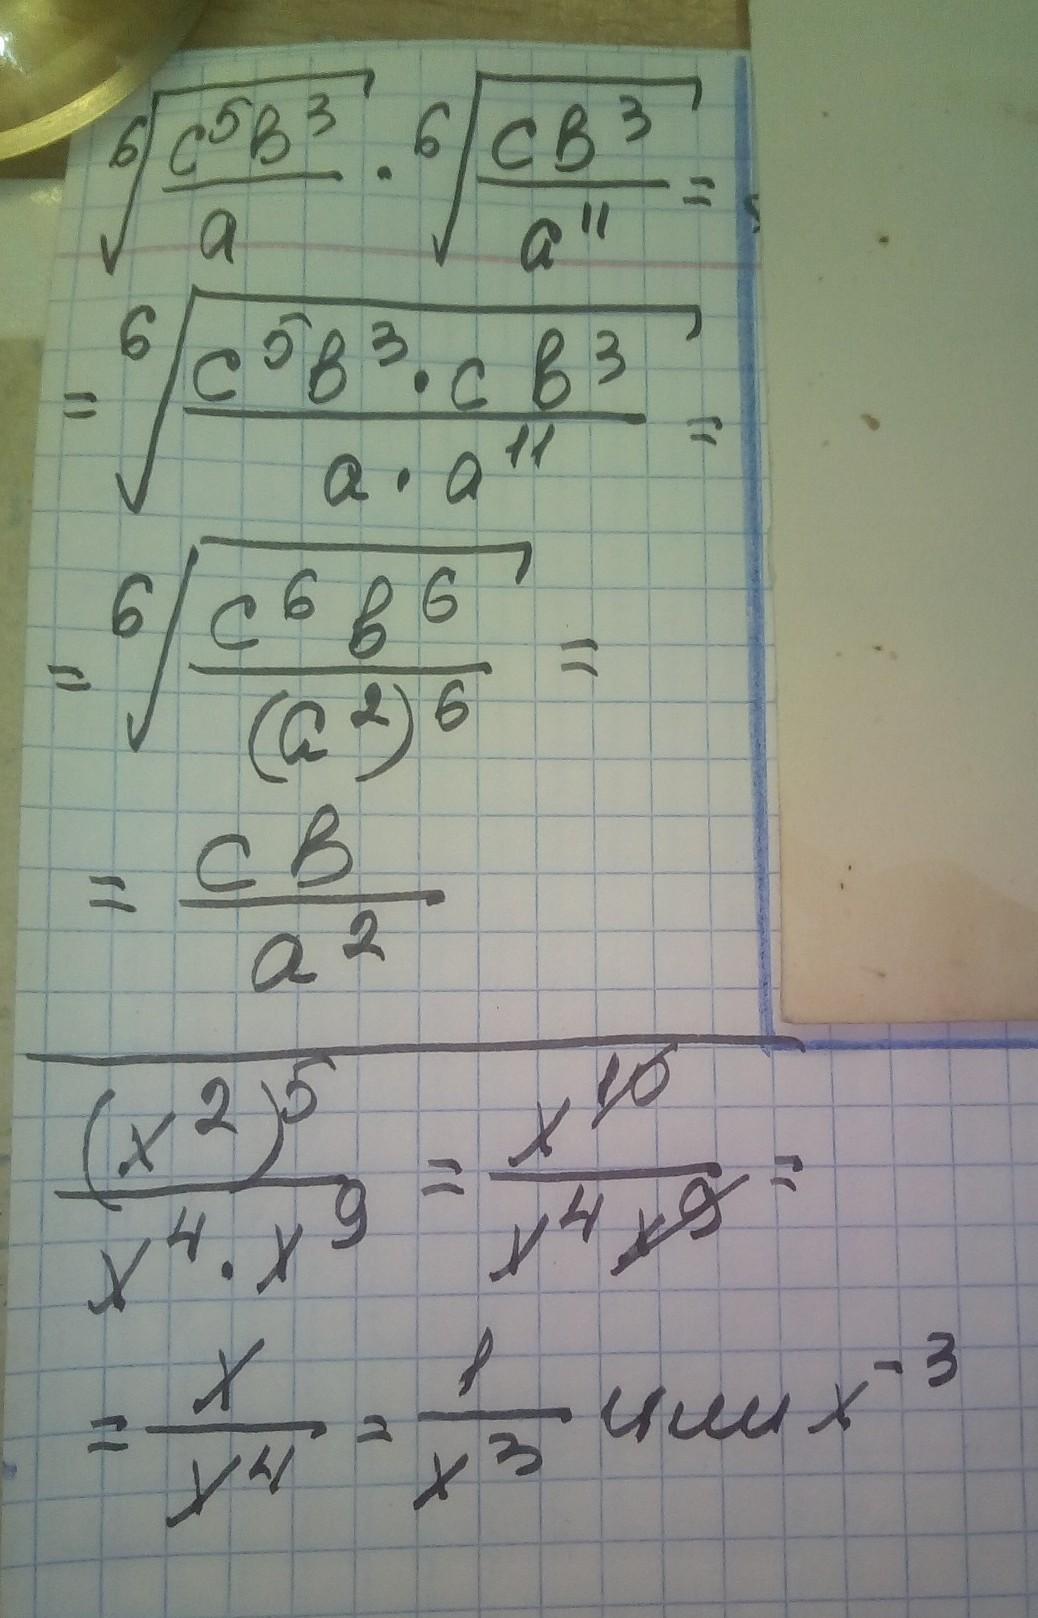 ⁶√(c⁵b³/a) · ⁶√(cb³/a¹¹) =
= ⁶√(c⁵b³ · c b³/a · a¹¹) =
= ⁶√(c⁶b⁶/(a²)⁶) =
= cb/a²
(x²)⁵/x⁴ · x⁹ = x¹⁰/x⁴x⁹ =
= x/x⁴ = 1/x³ или x⁻³